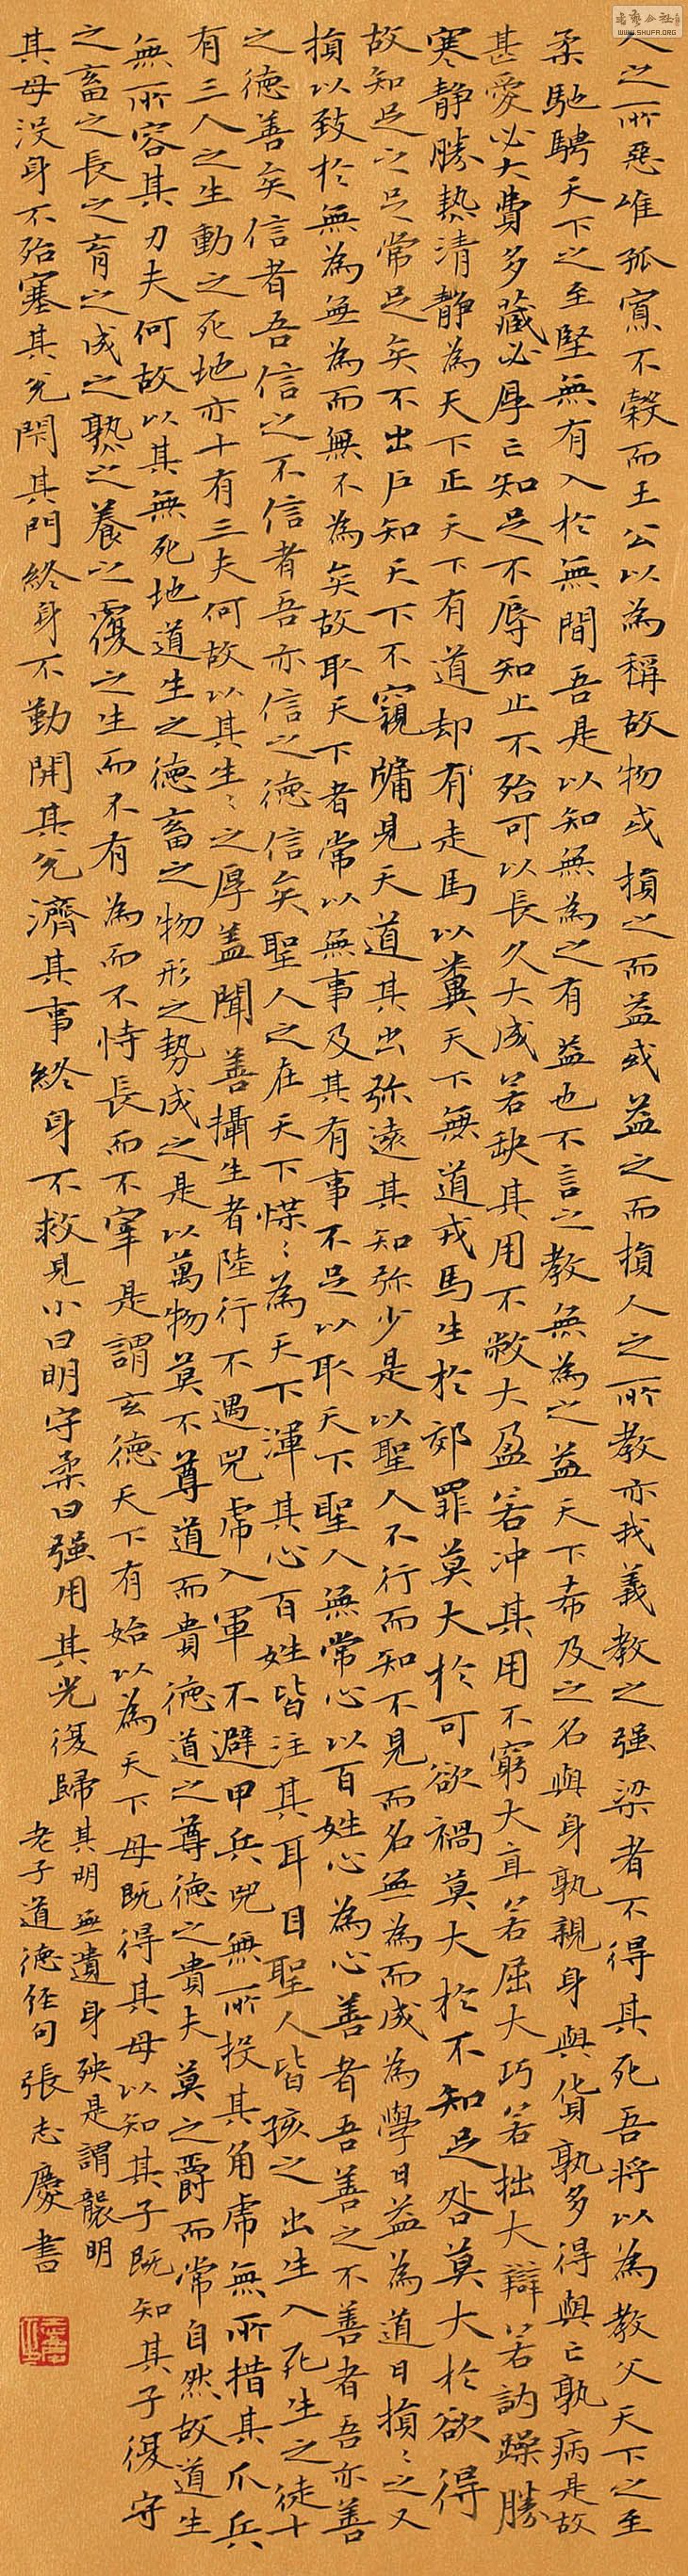 人之所惡唯孤寡不穀而王公以為稱故物或損之而益或益之而損人之所教亦我義教之强梁者不得其死吾將以為教父天下之至
柔馳騁天下之至堅無有入於無間吾是以知無為之有益也不言之教無為之益天下希及之名與身孰親身與貨孰多得與亡孰病是故
甚愛必大費多藏必厚亡知足不辱知止不殆可以長久大成若缺其用不敝大盈若冲其用不窮大直若屈大巧若拙大辯若訥躁勝
寒静勝熱清静為天下正天下有道却有走馬以糞天下無道戎馬生於郊罪莫大於可欲禍莫大於不知足咎莫大於欲得
故知足之足常足矣不出户知天下不窺牖見天道其出弥遠其知弥少是以聖人不行而知不見而名無為而成為學日益為道日損〻之又
損以致於無為無為而無不為矣故取天下者常以無事及其有事不足以取天下聖人無常心以百姓心為心善者吾善之不善者吾亦善
之德善矣信者吾信之不信者吾亦信之德信矣聖人之在天下惵〻為天下渾其心百姓皆注其耳目聖人皆孩之出生入死生之徒十
有三人之生動之死地亦十有三夫何故以其生〻之厚盖聞善攝生者陸行不遇兕虎入軍不避甲兵兕無所投其角虎無所措其爪兵
無所容其刃夫何故以其無死地道生之德畜之物形之勢成之是以萬物莫不尊道而貴德道之尊德之貴夫莫之爵而常自然故道生
之畜之長之育之成之熟之養之覆之生而不有為而不恃長而不宰是謂玄德天下有始以為天下母既得其母以知其子既知其子復守
其母没身不殆塞其兑閉其門終身不勤開其兑濟其事終身不救見小曰明守柔曰强用其光復歸
其明無遺身殃是謂襲明
老子道德經句張志慶書
書藝公社
WWW.SHUFA.ORG